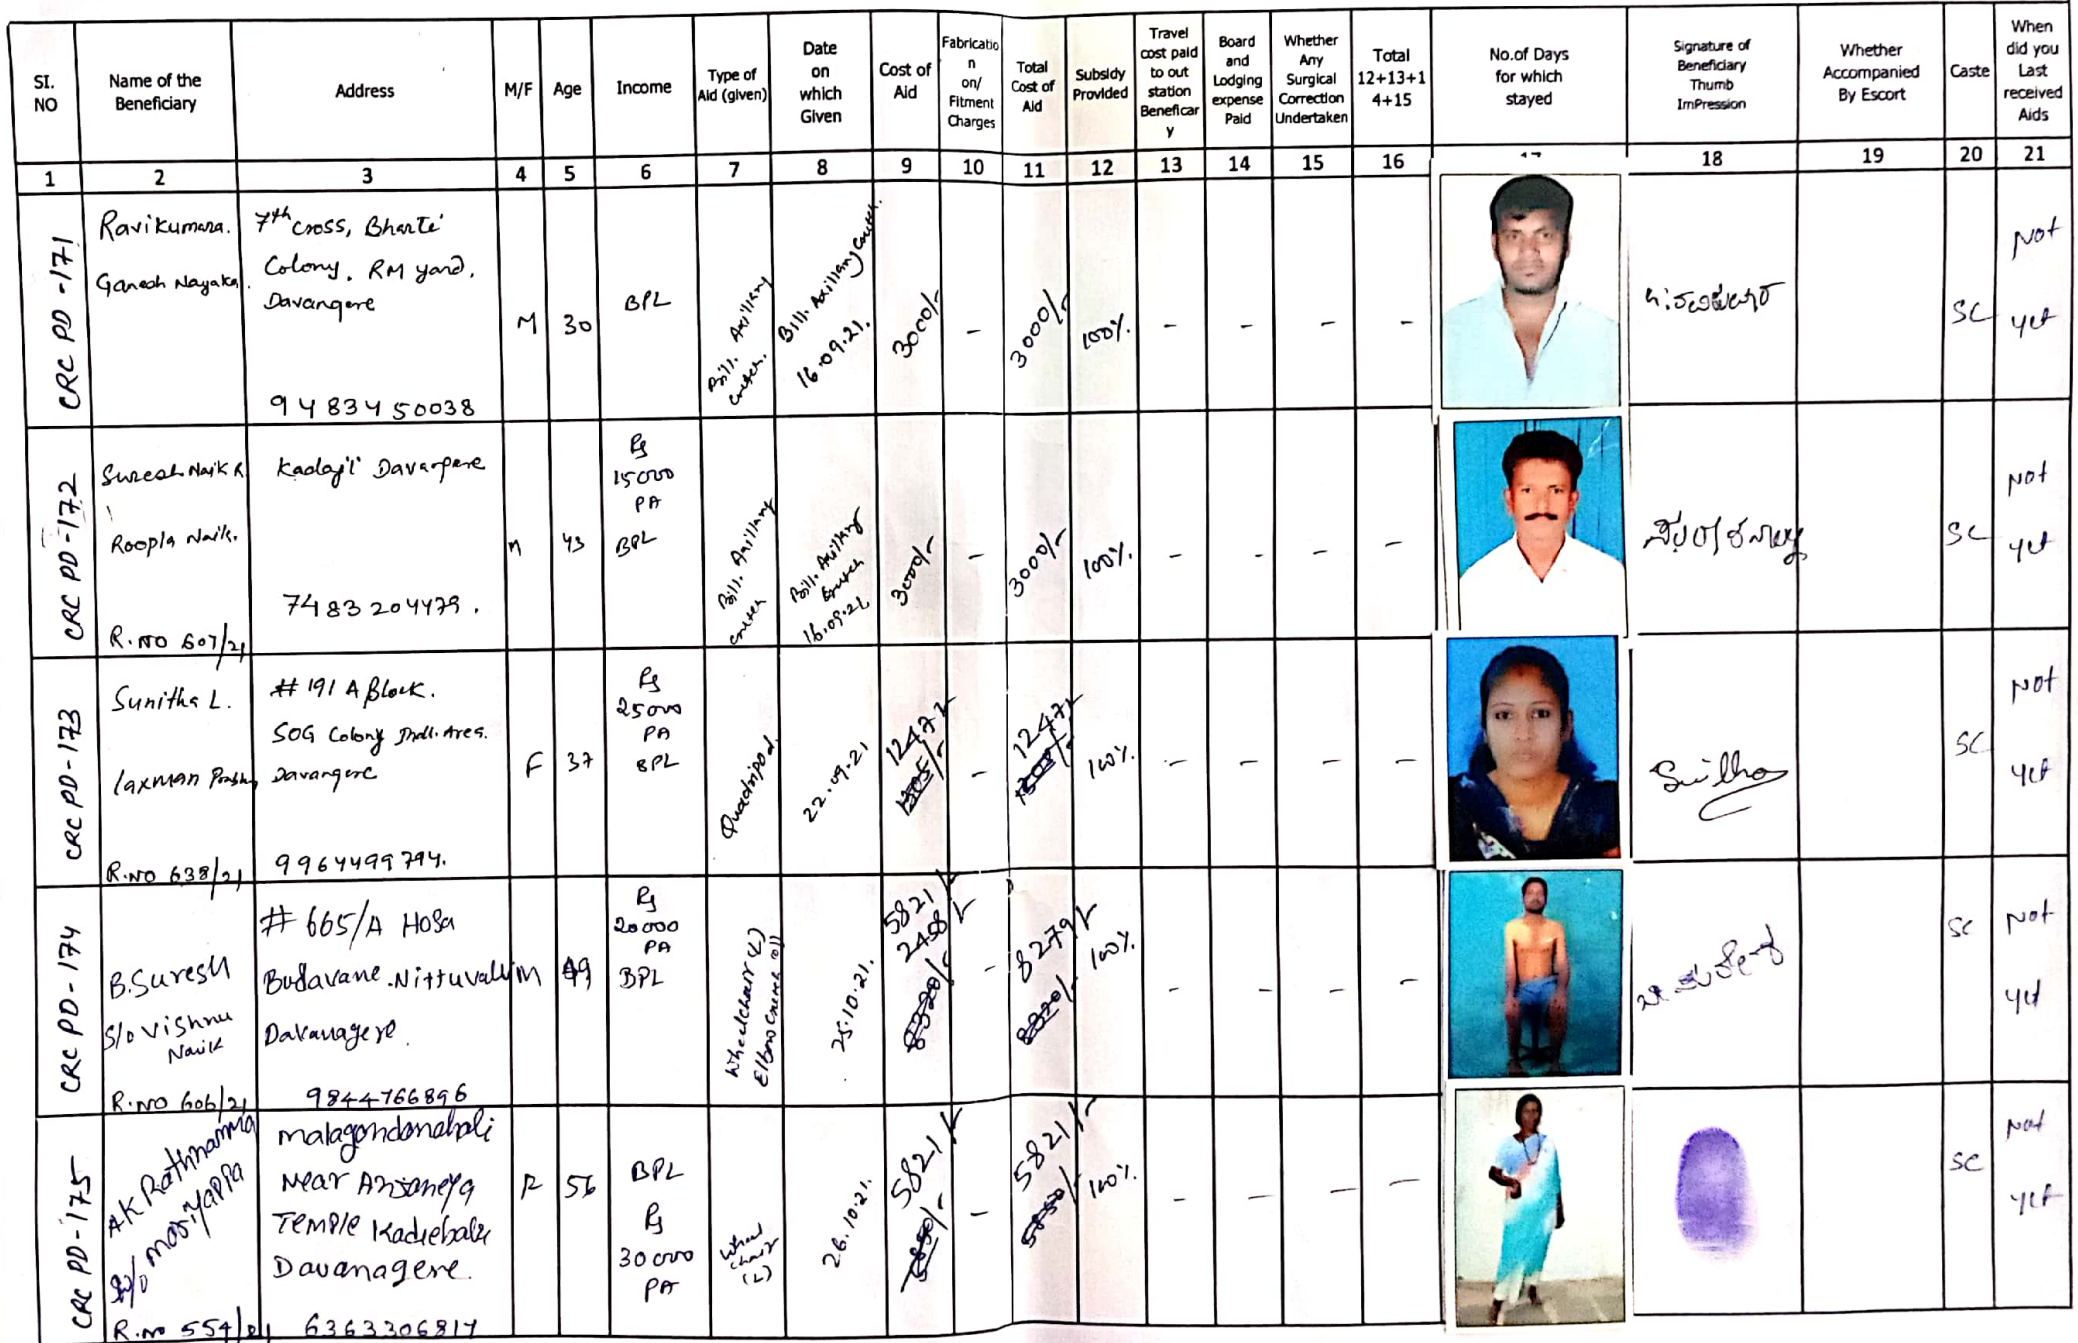 SI. NO
Name of the Beneficiary
Address
M/F
Age
Income
Type of Aid (given)
Date on which Given
Cost of Aid
Fabricatio n on/ Fitment Charges
Total Cost of Aid
Subsidy Provided
Travel cost paid to out station Beneficar y
Board and Lodging expense Paid
Whether Any Surgical Correction Undertaken
Total 12+13+1 4+15
No.of Days for which stayed
Signature of Beneficiary Thumb ImPression
Whether Accompanied By Escort
Caste
When did you Last received Aids
1 2 3 4 5 6 7 8 9 10 11 12 13 14 15 16 17 18 19 20 21
CRC PD -171
Ravikumara.
Ganesh Nayaka.
7th cross, Bharti
Colony. RM yard.
Davangere
9483450038
M
30
BPL
Bill. Axillary
crutch.
Bill. Axillary crutch.
16.09.21.
3000/-
-
3000/-
100%.
- - - -
SC
Not
yet
CRC PD-172
Suresh Naik R
Roopla Naik.
R.NO 607/21
Kadajji Davangere
7483204479.
M
43
Rs
15000
PA
BPL
Bill. Axillary
crutch
Bill. Axillary
Crutch
16.09.21
3000/-
-
3000/-
100%.
- - - -
SC
Not
yet
CRC PD-173
Sunitha L.
Laxman
R.NO 638/21
# 191 A Block.
SOG Colony Indl. Area.
Davangere
9964499794.
F
37
Rs
25000
PA
BPL
Quadripod.
22.09.21
1247/-
-
1247/-
100%.
- - - -
SC
Not
yet
CRC PD-174
B.Suresh
S/o Vishnu
Naik
R.NO 606/21
# 665/A Hosa
Budavane.Nittuvalli
Davanagere.
9844766896
M
49
Rs
20000
PA
BPL
Wheelchair (L)
Elbow crutch
25.10.21.
5821/-
2458/-
8320/-
-
8279/-
8320/-
100%.
- - - -
SC
Not
yet
CRC PD-175
AK Rathnamma
R.no 554/21
malagondanahali
Near Anjaneya
Temple Kadlebalu
Davanagere.
6363306817
F
56
BPL
Rs
30000
PA
Wheel
chair
(L)
26.10.21.
5821/-
5850/-
-
5821/-
5850/-
100%.
- - - -
SC
Not
yet